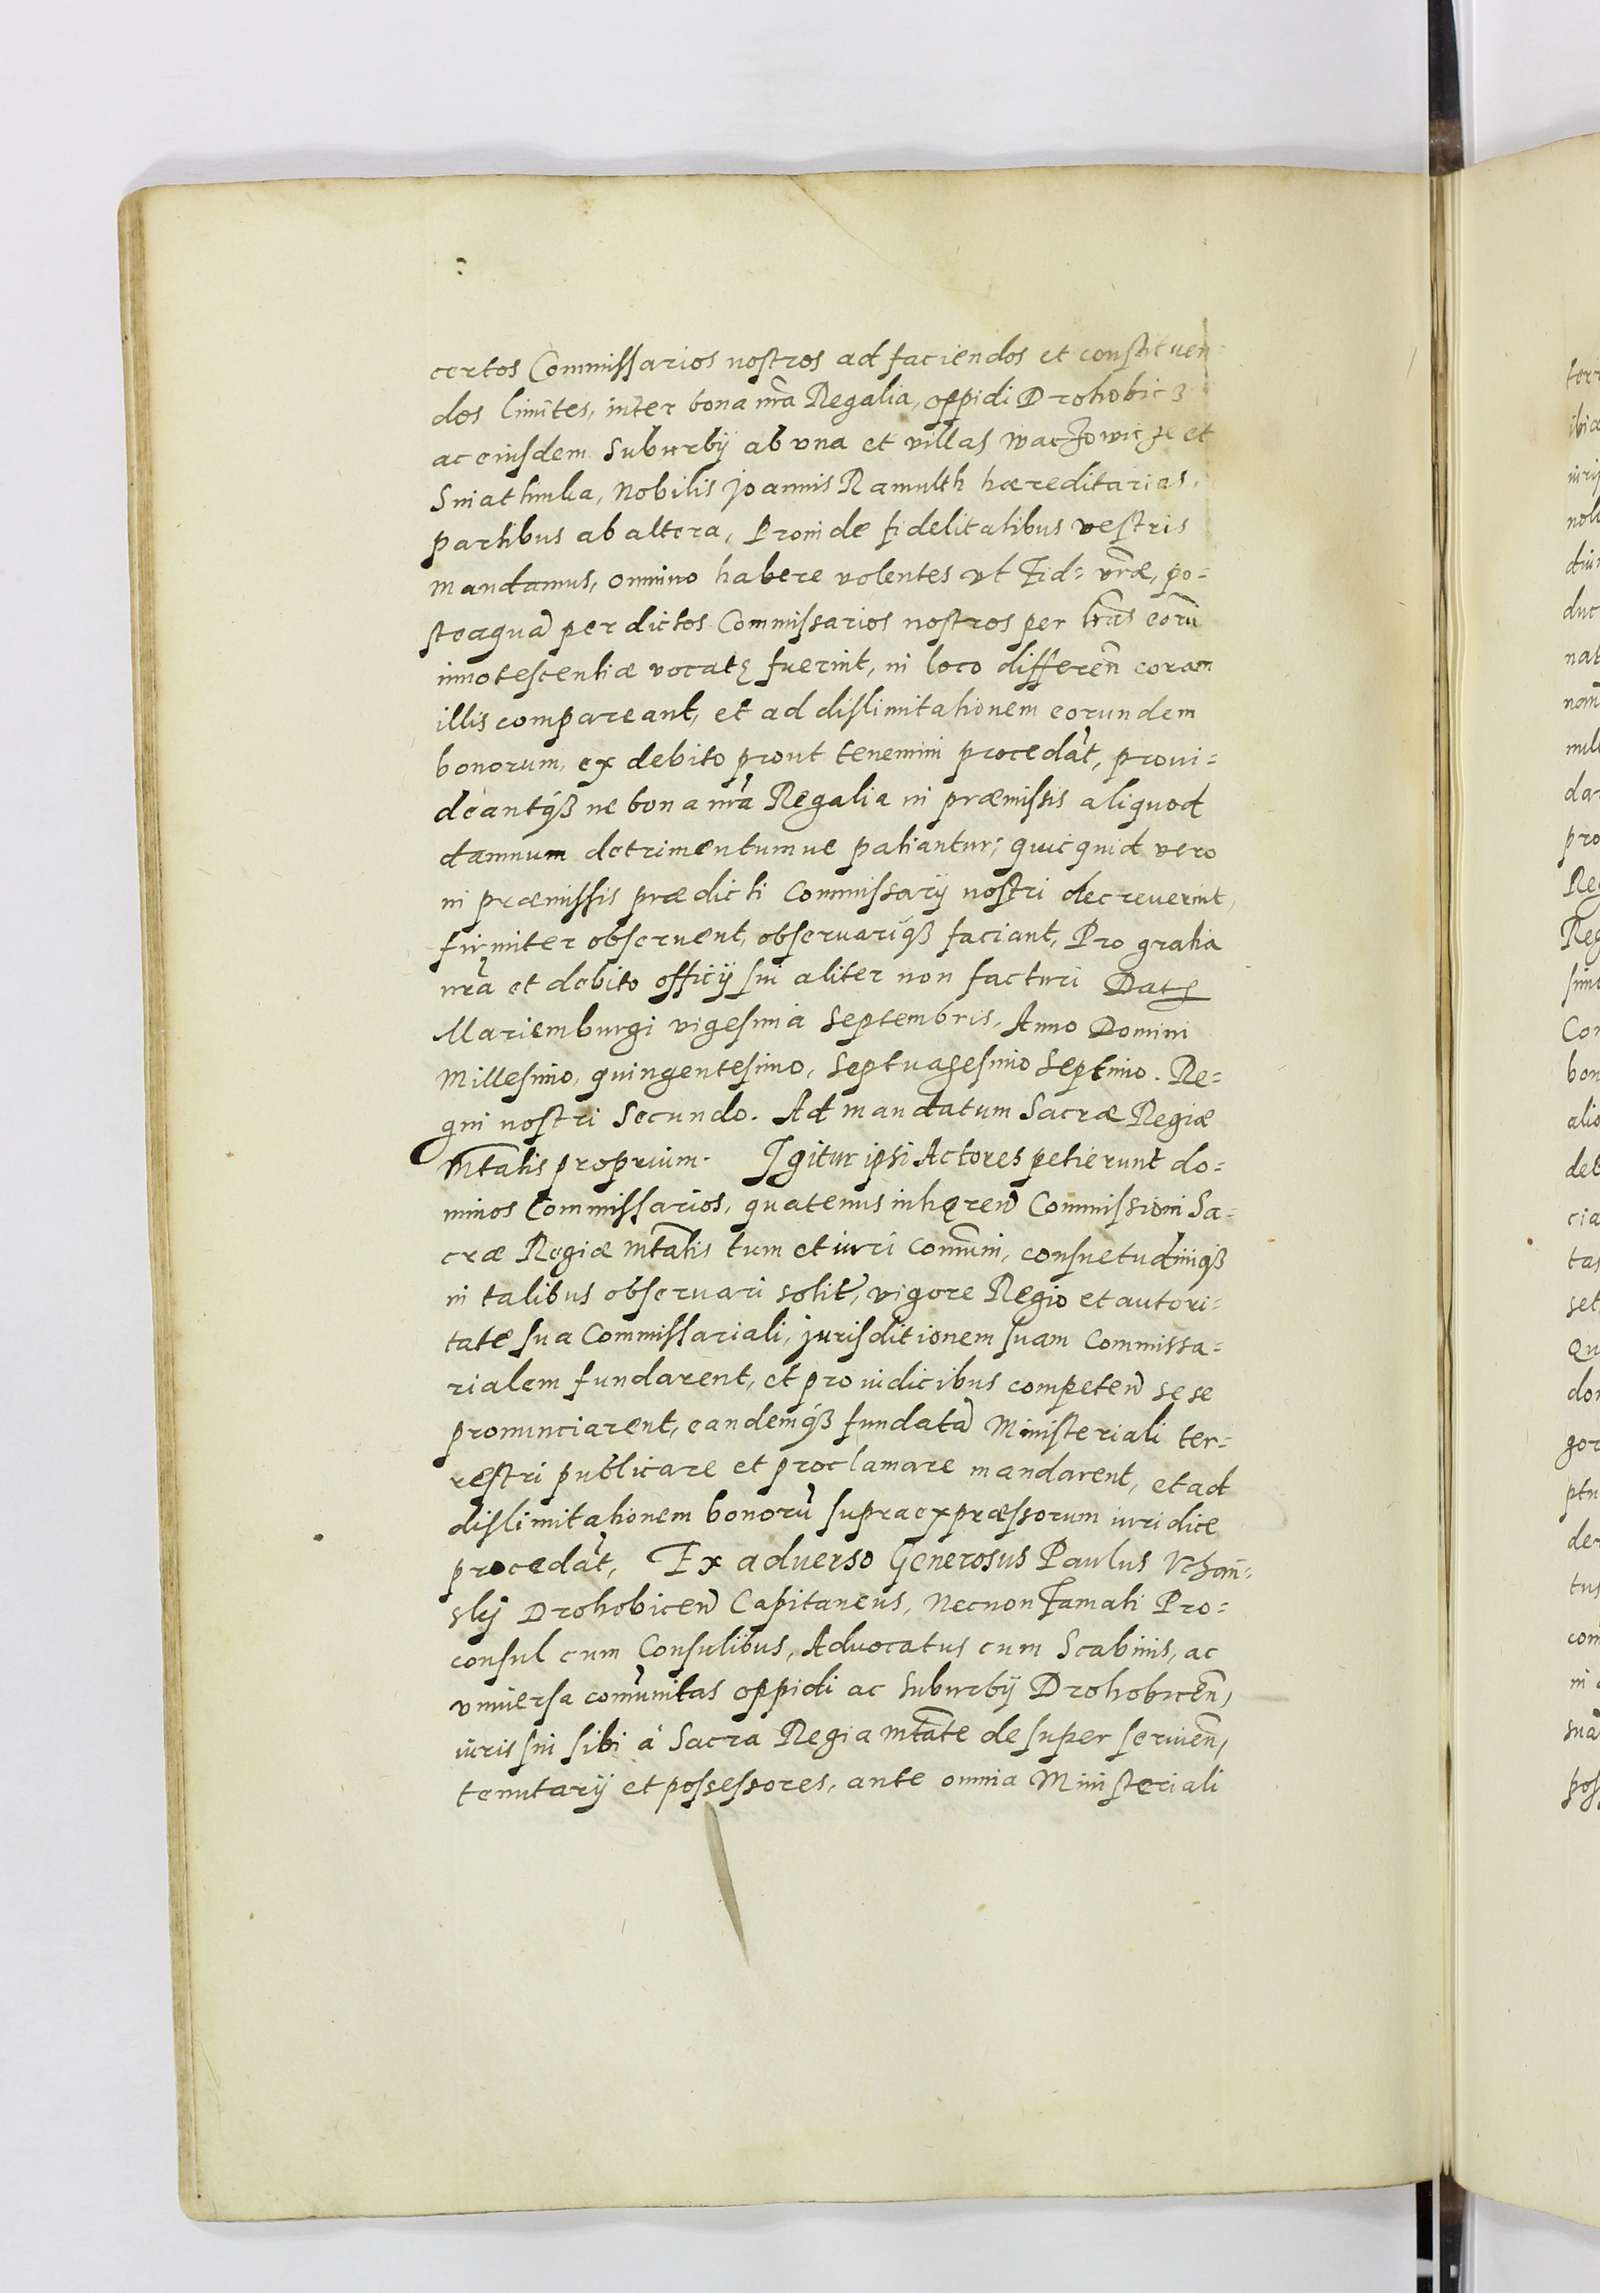 certos Commissarios nostros ad faciendos et constituen=
dos limites, inter bona nr̃a Regalia, oppidi Drohobicz
ac eiusdem Suburbij ab vna et villas Waczowicze et
Sniathinka, Nobilis Joannis Ramulth hæreditarias,
partibus ab altera, Proinde fidelitatibus vestris
mandamus, omnino habere volentes vt Fid= vr̃æ, po=
steaquã per dictos Commissarios nostros per lr̃as eorũ
innotescentiæ vocatę fuerint, in loco differeñ coram
illis compareant, et ad dislimitationem eorundem
bonorum, ex debito prout tenemini procedãt, proui=
deantqß ne bona nr̃a Regalia in præmissis aliquod
damnum detrimentumue patiantur; quicquid vero
in præmissis prædicti Commissarij nostri decreuerint,
firmiter obseruent, obseruariqß faciant, Pro gratia
nr̃a et debito officij sui aliter non facturi Datę
Mariemburgi vigesima Septembris, Anno Domini
Millesimo, quingentesimo, Septuagesimo Septimo. Re=
gni nostri Secundo. Ad mandatum Sacræ Regiæ
Mtatis proprium. Igitur ipsi Actores petierunt do=
minos Commissarios, quatenus inhęreñ Commissioni Sa=
cræ Regiæ Mtatis tum et iuri Com̃uni, consuetudiniqß
in talibus obseruari solit̃, vigore Regio et autori=
tate sua Commissariali, jurisditionem suam Commissa=
rialem fundarent, et pro iudicibus competeñ sese
pronunciarent, eandemqß fundatã Ministeriali ter=
restri publicare et proclamare mandarent, et ad
dislimitationem bonorũ supraexpræssorum iuridice
procedãt, Ex aduerso Generosus Paulus Vchań=
skj Drohobiceñ Capitaneus, Necnon Famati Pro=
consul cum Consulibus, Aduocatus cum Scabinis, ac
vniuersa com̃unitas oppidi ac Suburbij Drohobiceñ,
iuris sui sibi à Sacra Regia Mtate desuper seruieñ,
tenutarij et possessores, ante omnia Ministeriali